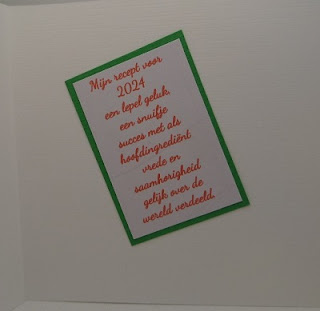 Mijn recept voor
2024
een lepel geluk,
een snuifje
succes met als
hoofdingrediënt
vrede en
saamhorigheid
gelijk over de
wereld verdeeld.